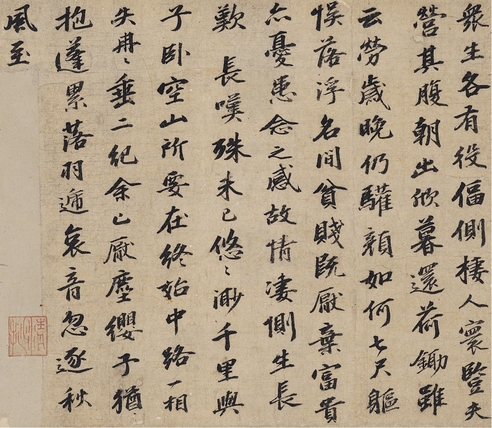 衆生各有役偪側棲人寰豎夫
營其腹朝出欣暮還荷鋤雖
云勞歲晚仍驩顏如何七尺軀
悮落浮名間貧賤既厭棄富貴
亦憂患念之感故情淒惻生長
歎 長嘆殊未已悠〻渺千里與
子卧空山所要在終始中路一相
失冉〻垂二紀余已厭塵纓子猶
抱蓬累落羽遞哀音忽逐秋
風至